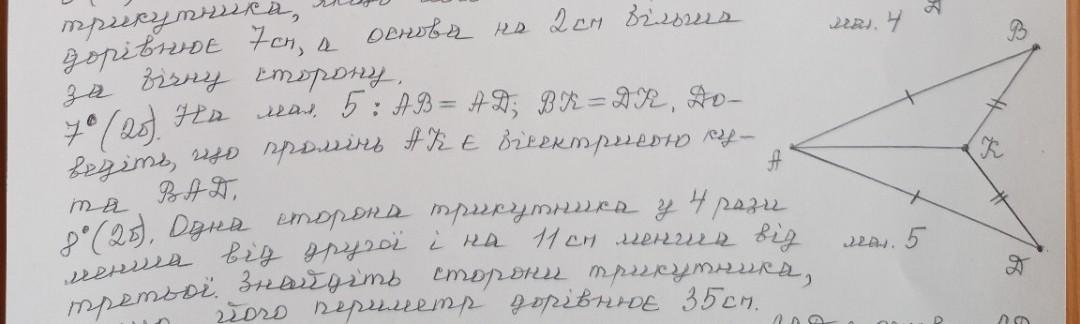 трикутника,
дорівнює 7см, а основа на 2см більша
за бічну сторону.
7° (2б). На мал. 5 : AB = AД; BK = ДK. До-
ведіть, що промінь AK є бісектрисою ку-
та BAД.
8° (2б). Одна сторона трикутника у 4 рази
менша від другої і на 11 см менша від
третьої. Знайдіть сторони трикутника,
його периметр дорівнює 35см.
мал. 4
Д
B
A
K
мал. 5
Д